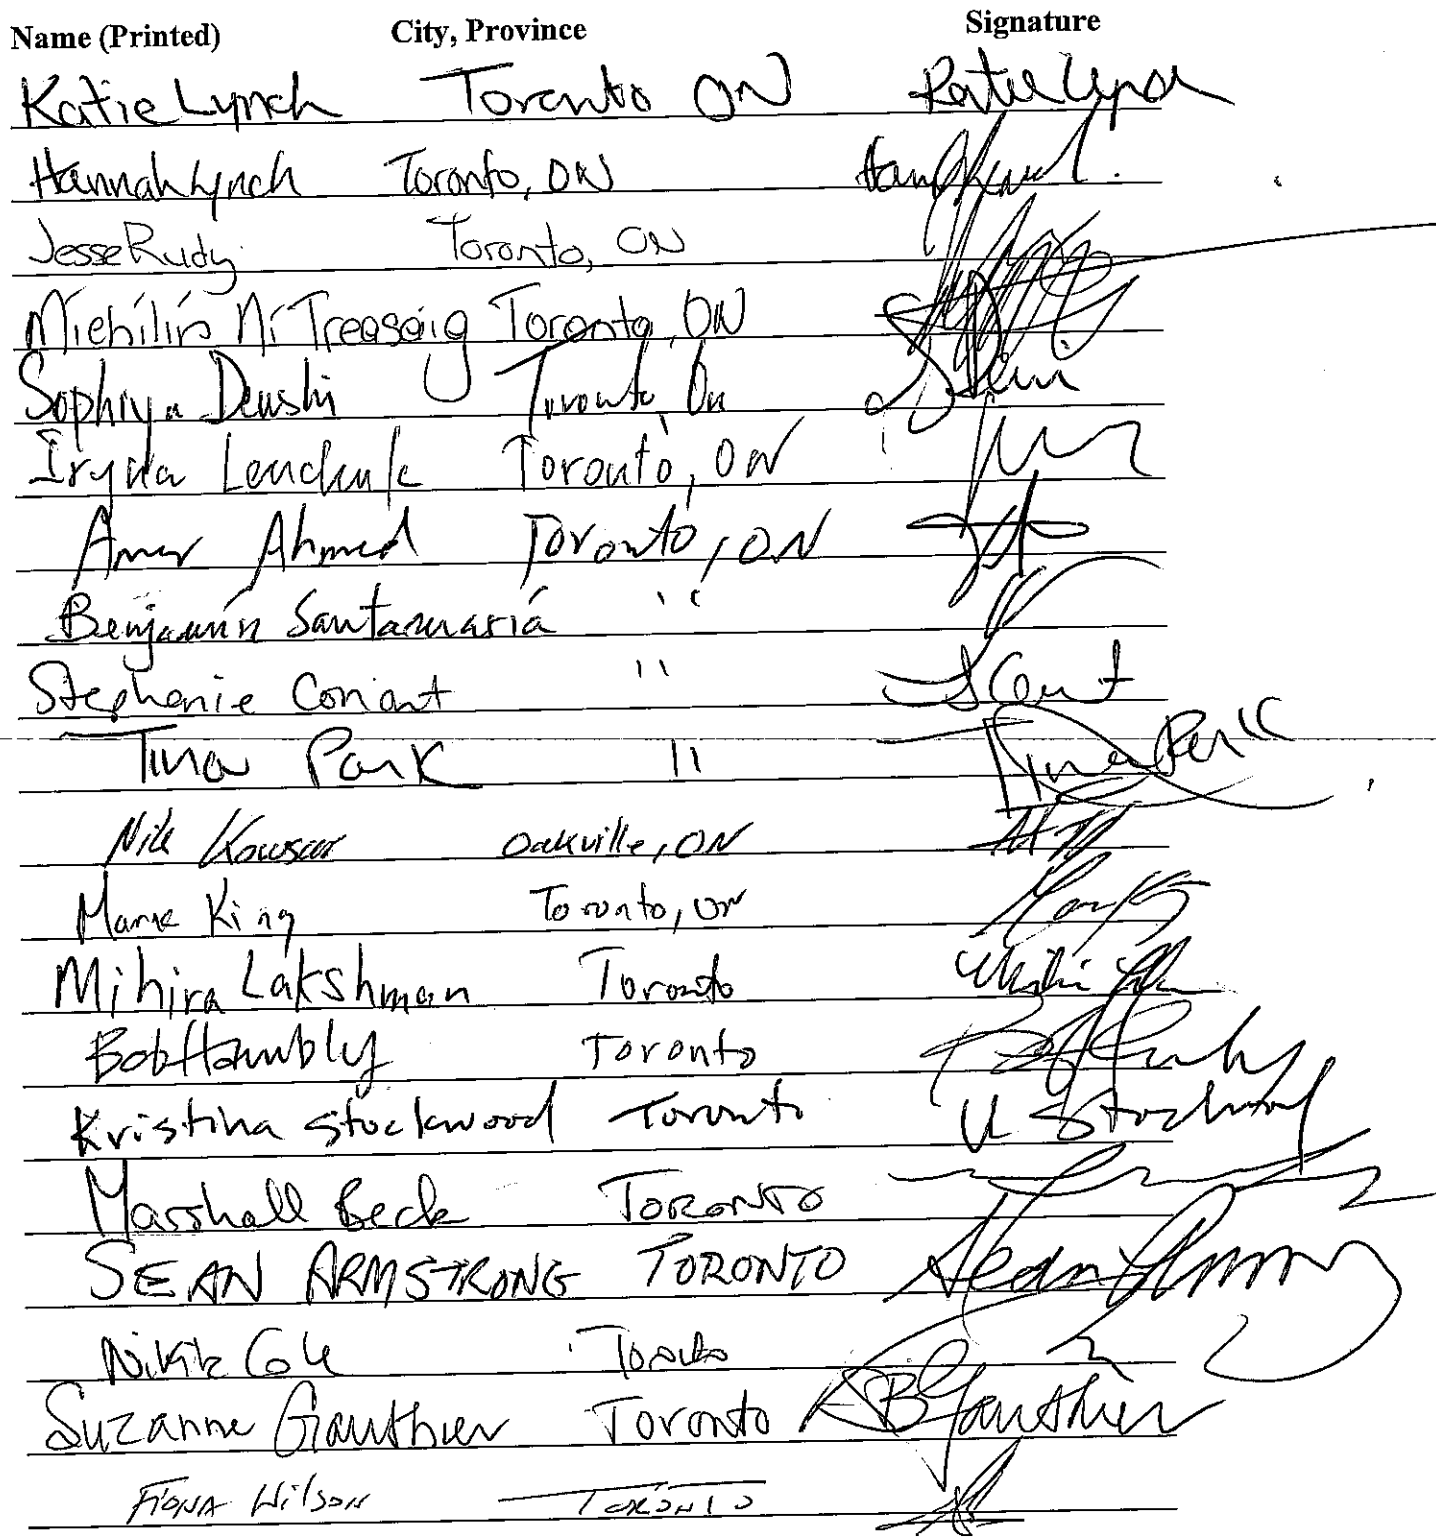 Name (Printed) City, Province Signature
Katie Lynch Toronto ON Katie Lynch
Hannah Lynch Toronto, ON
Jesse Rudy Toronto, ON
Míchílín Ní Treasaig Toronto, ON
Sophiya Toronto, On
Iryna Lenchuk Toronto, ON
Amer Ahmed Toronto, ON
Benjamín Santamaría ''
Stephanie Conant '' S Conant
Tina Park '' Tina Park
Kowsar Oakville, ON
King Toronto, ON
Mihira Lakshman Toronto
Bob Hambly Toronto
Kristina Stockwood Toronto K Stockwood
Marshall Beck TORONTO
SEAN ARMSTRONG TORONTO Sean
Cole Toronto
Suzanne Gauthier Toronto SB Gauthier
FIONA WILSON TORONTO